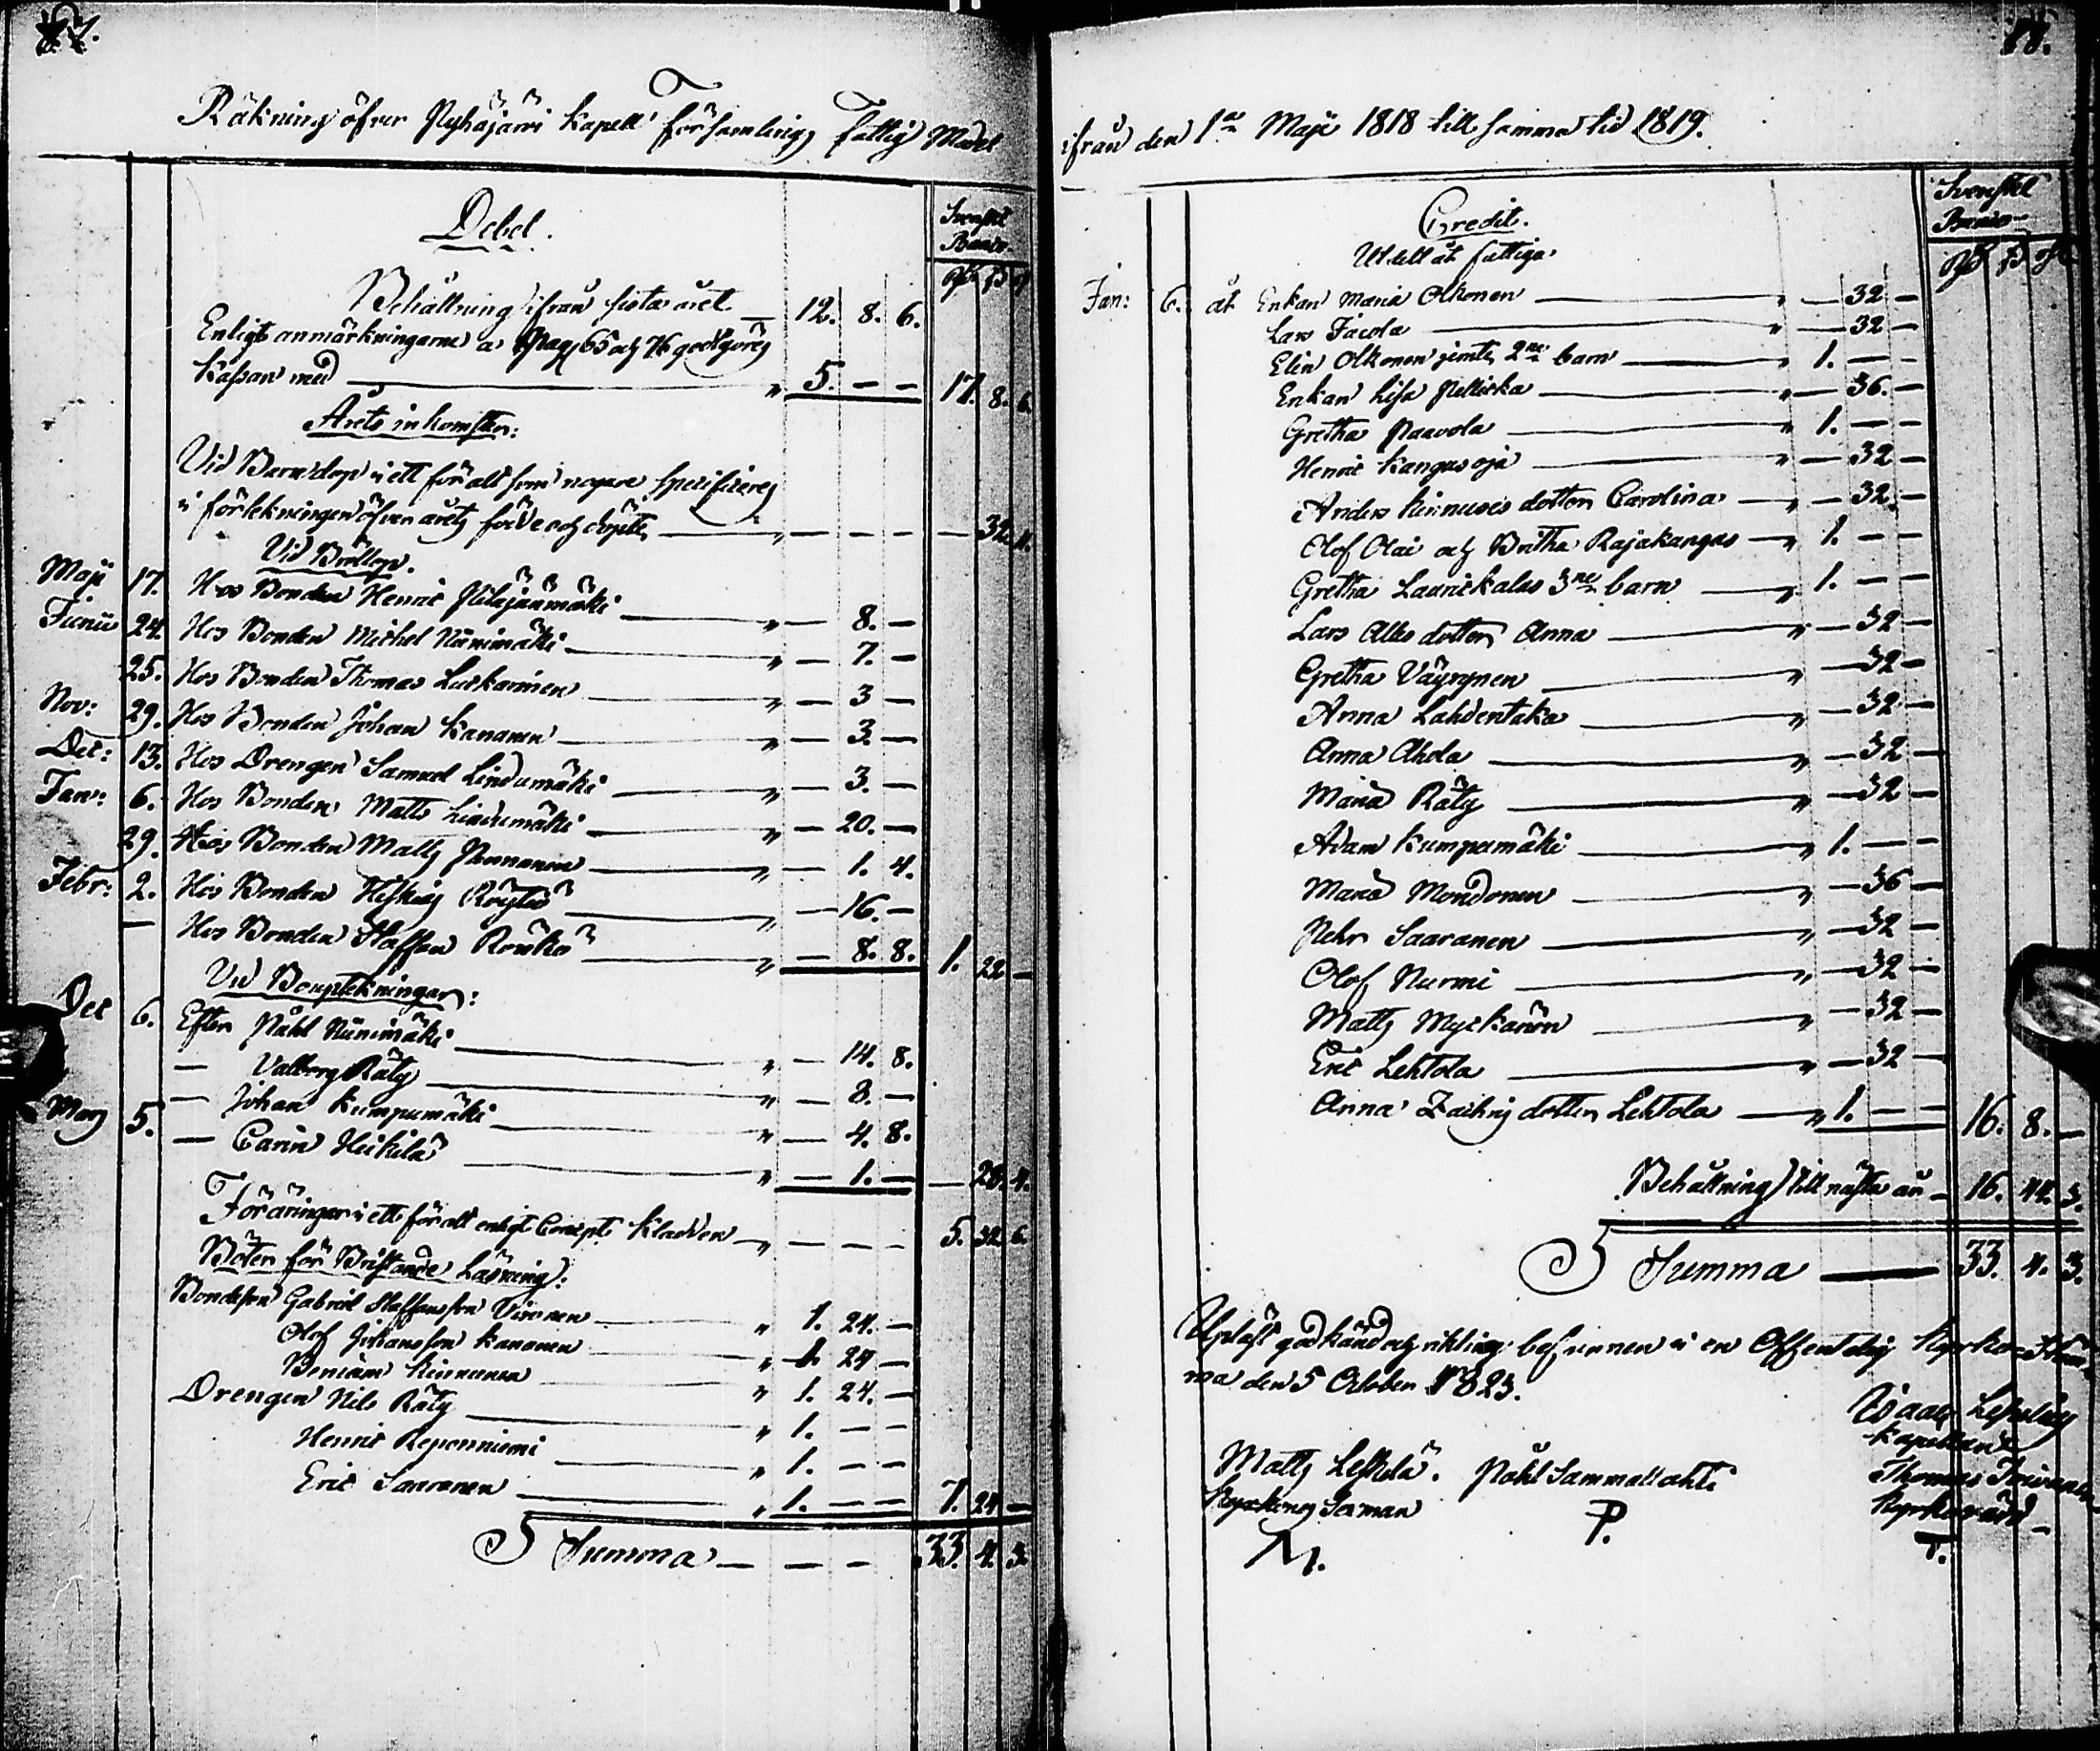 Räkning öfver Pyhäjärvi Kapell Församlings Fattig Medel
Debet.
Svenskt
Banco
Behållning ifrån sista året — 12. 8. 6.
Enligt anmärkningarne a Pag 65 och 76 godtgöres
Kassan med — " 5. — — 17. 8. 6.
Årets inkomster:
Vid Barndop i ett för alt som nogare specificeres
i förtekningen öfver årets födde och döpte — " — — — — 32. 4.
Vid Bröllop.
Maji 17. Hos Bonden Henric Pitkäjänmäki — " — 8. —
Junii 24. Hos Bonden Michel Niinimäki — " — 7. —
25. Hos Bonden Thomas Luskarinen — " — 3 —
Nov: 29. Hos Bonden Johan Kananen — " — 3. —
Dec: 13. Hos Drengen Samuel Lindumäki — " — 3. —
Jan: 6. Hos Bonden Matts Lindumäki — " — 20. —
29. Hos Bonden Matts Pennanen — " — 1. 4.
Febr: 2. Hos Bonden Hiskias Röytiö — " — 16. —
— Hos Bonden Staffan Rouko — " — 8. 8. 1. 22 —
Vid Bouptekningar:
Dec 6. Efter Påhl Niinimäki — " — 14. 8.
— Valborg Räty — " — 8. —
— Johan Kumpumäki — " — 4. 8.
Mars 5. — Carin Heikilä — " — 1. — — 28. 4.
Föräringar i ett för alt enligt Concept Kladden — " — — — 5. 32 6.
Böter för Bristande Läsning:
Bondeson Gabriel Staffansson Vironen — " 1. 24. —
Olof Johansson Kananen — " 1. 24 —
Beniam Kinnunen — " 1. 24. —
Drengen Nils Räty — " 1. — —
Henric Reponniemi — " 1. — —
Eric Saaranen — " 1. — — 7. 24 —
Summa — — — 33. 4. 3.
ifrån den 1sta Maji 1818 till samma tid 1819.
Credit.
Svenskt
Banco
Utdelt åt fattiga
Jan: 6. åt Enkan Maria Olkonen — " — 32 —
Lars Jacola — " — 32 —
Elin Olkonen jemte 2ne barn — " 1. — —
Enkan Lisa Pellicka — " — 36. —
Gretha Paavola — " 1. — —
Henric Kangasoja — " — 32 —
Anders Kinnuses dotter Carolina — " — 32. —
Olof Olai och Britha Rajakangas — " 1. — —
Gretha Laurickalas 3ne barn — " 1. — —
Lars Alks dotter Anna — " — 32 —
Gretha Väyrynen — " — 32 —
Anna Lahdentaka — " — 32 —
Anna Ahola — " — 32 —
Maria Räty — " — 32 —
Adam Kumpumäki — " 1. — —
Maria Mondonen — " — 36 —
Pehr Saaranen — " — 32 —
Olof Nurmi — " — 32 —
Matts Myckänen — " — 32 —
Eric Lehtola — " — 32 —
Anna Zachris dotter Lehtola — " 1. — — 16. 8. —
Behållning till nästa år — 16. 44. 3.
Summa — 33. 4. 3.
Upläst godkänd och riktig befunnen i en Offentelig Kyrko-Stäm
ma den 5 October 1823.
Isaac
Kapellan
Matts Leskelä. Påhl Sammallahti Thomas
Kyrkones Sexman Kyrkovärd
M. P. T.